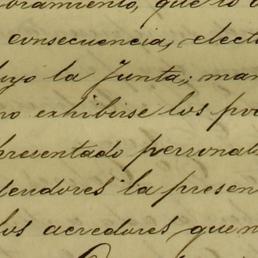 oramiento, que ro o
consecuencia, electo
dujo la Junta; man
no exhibirse los pod
presentado personal
tendores la presen
los acredores que n